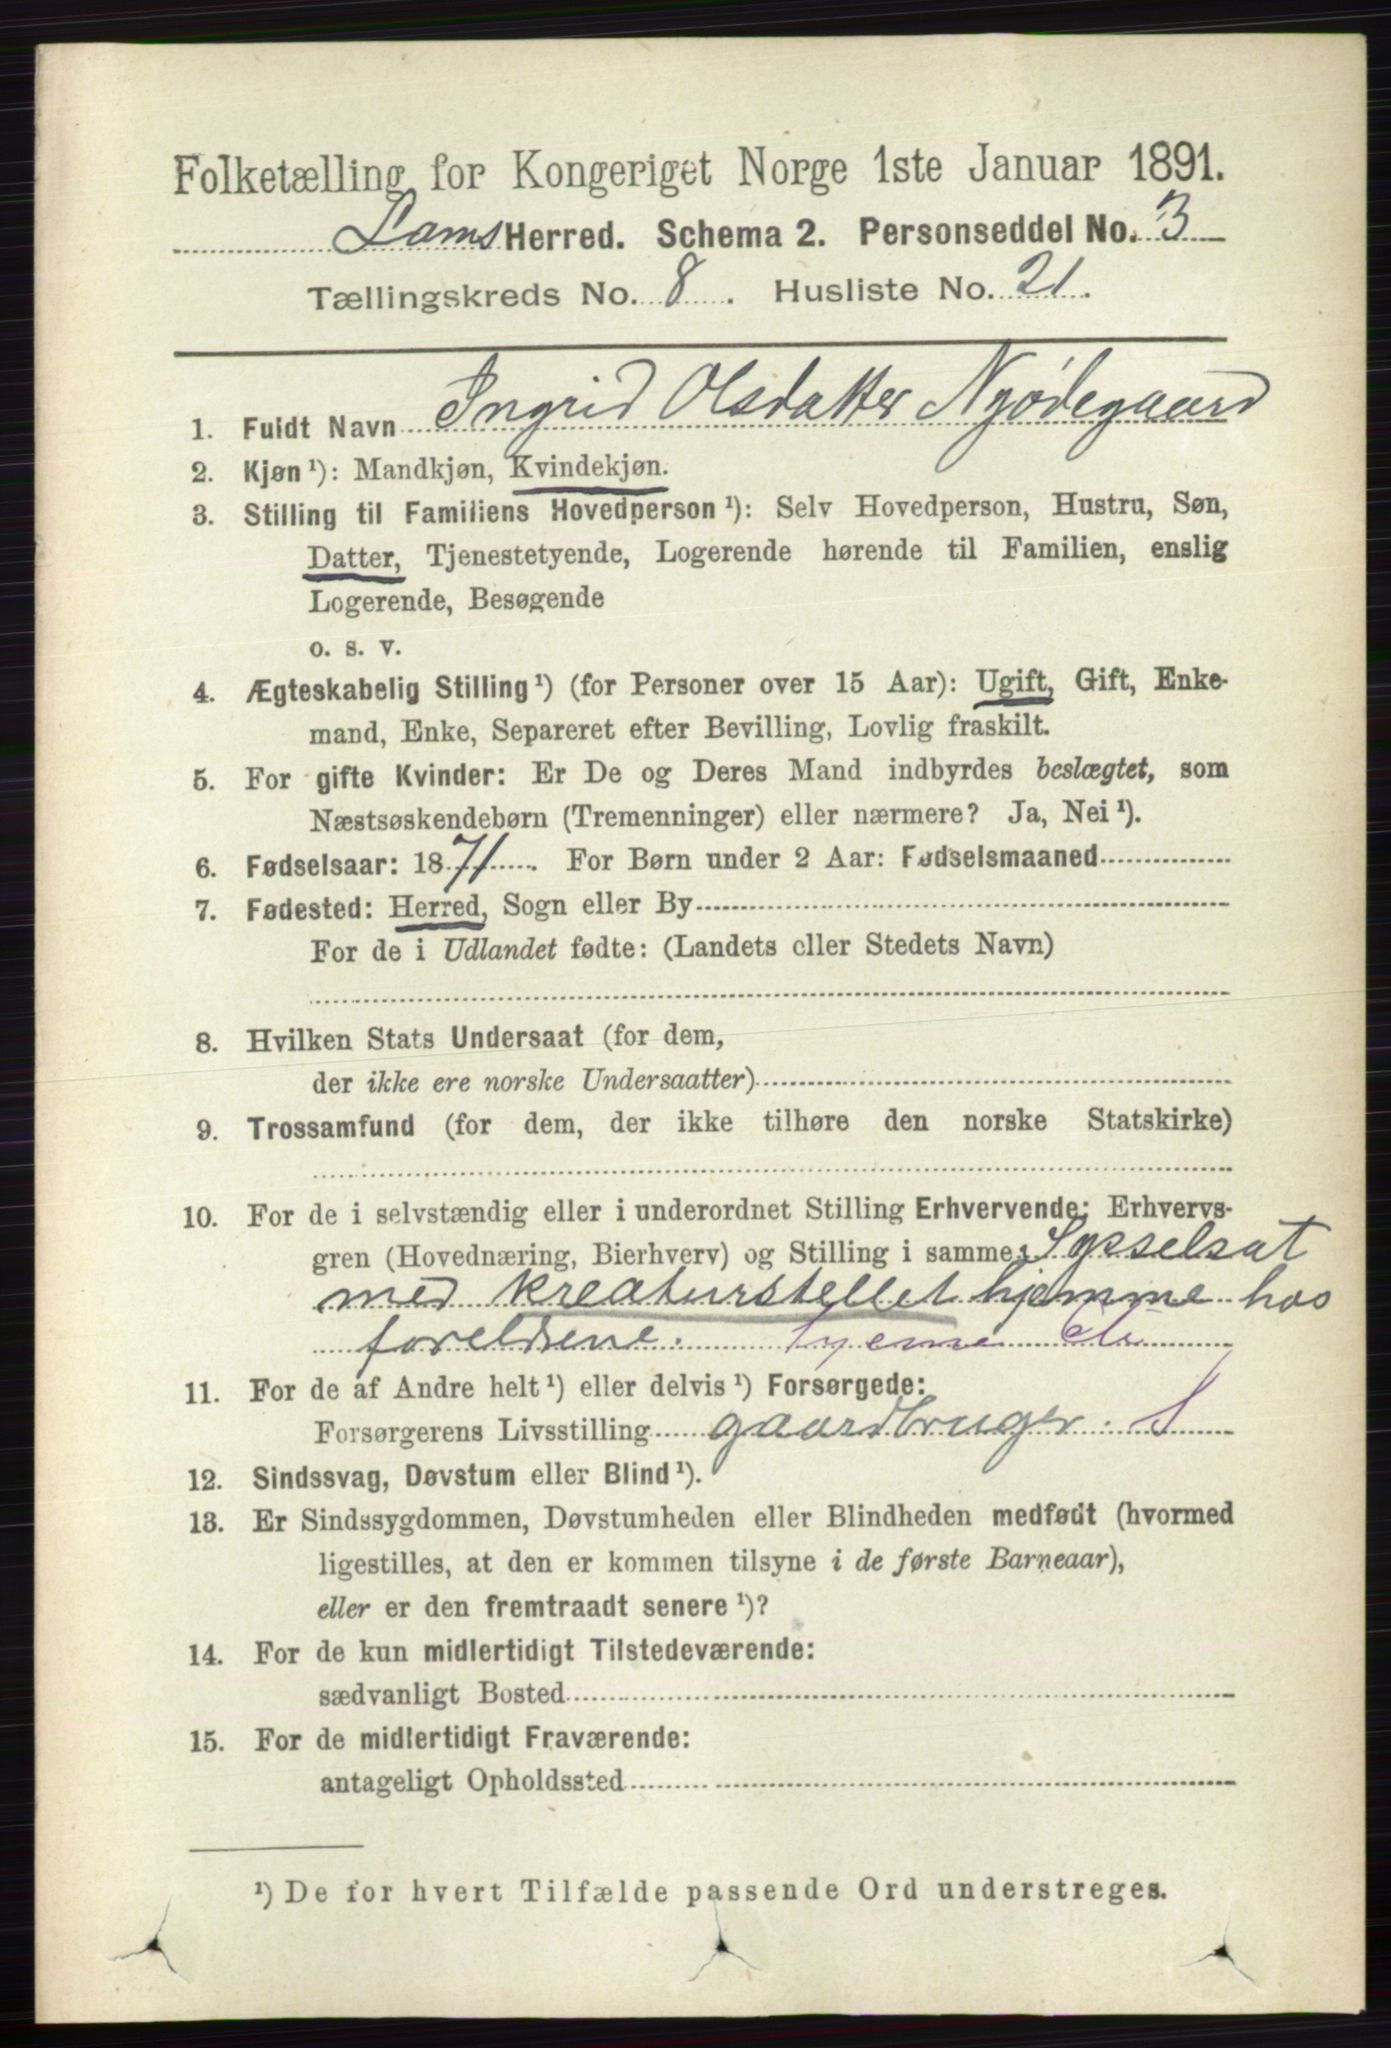 Folketælling for Kongeriget Norge 1ste Januar 1891.
Loms Herred. Schema 2. Personseddel No. 3
Tællingskreds No. 8. Husliste No. 21.
1. Fuldt Navn Ingrid Olsdatter Nyødegaard
2. Kjøn ¹): Mandkjøn, Kvindekjøn.
3. Stilling til Familiens Hovedperson ¹): Selv Hovedperson, Hustru, Søn,
Datter, Tjenestetyende, Logerende hørende til Familien, enslig
Logerende, Besøgende
o. s. v.
4. Ægteskabelig Stilling ¹) (for Personer over 15 Aar): Ugift, Gift, Enke-
mand, Enke, Separeret efter Bevilling, Lovlig fraskilt.
5. For gifte Kvinder: Er De og Deres Mand indbyrdes beslægtet, som
Næstsøskendebørn (Tremenninger) eller nærmere? Ja, Nei ¹).
6. Fødselsaar: 1871. For Børn under 2 Aar: Fødselsmaaned
7. Fødested: Herred, Sogn eller By
For de i Udlandet fødte: (Landets eller Stedets Navn)
8. Hvilken Stats Undersaat (for dem,
der ikke ere norske Undersaatter)
9. Trossamfund (for dem, der ikke tilhøre den norske Statskirke)
10. For de i selvstændig eller i underordnet Stilling Erhvervende: Erhvervs-
gren (Hovednæring, Bierhverv) og Stilling i samme: Sysselsat
med kreaturstellet hjemme hos
foreldrene.
11. For de af Andre helt ¹) eller delvis ¹) Forsørgede:
Forsørgerens Livsstilling gaardbruger. S
12. Sindssvag, Døvstum eller Blind ¹).
13. Er Sindssygdommen, Døvstumheden eller Blindheden medfødt (hvormed
ligestilles, at den er kommen tilsyne i de første Barneaar),
eller er den fremtraadt senere ¹)?
14. For de kun midlertidigt Tilstedeværende:
sædvanligt Bosted
15. For de midlertidigt Fraværende:
antageligt Opholdssted
¹) De for hvert Tilfælde passende Ord understreges.